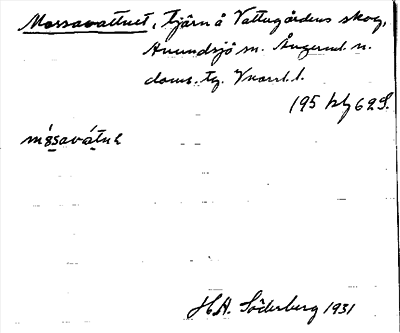 Mossavattnet, tjärn å Vattugårdens skog,
Anundsjö sn. Ångerml. n.
doms. tg. Vnorrl. l.
195 kbg 62 S.
H.A. Söderberg 1931